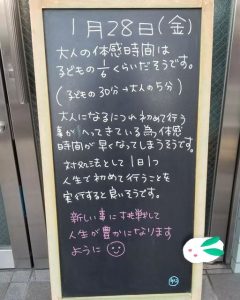 1月28日(金)
大人の体感時間は
子どもの1/6くらいだそうです。
(子どもの30分→大人の5分)
大人になるにつれ初めて行う
事がへってきている為、体感
時間が早くなってしまうそうです。
対処法として1日1つ
人生で初めて行うことを
実行すると良いそうです。
新しい事に挑戦して
人生が豊かになります
ように